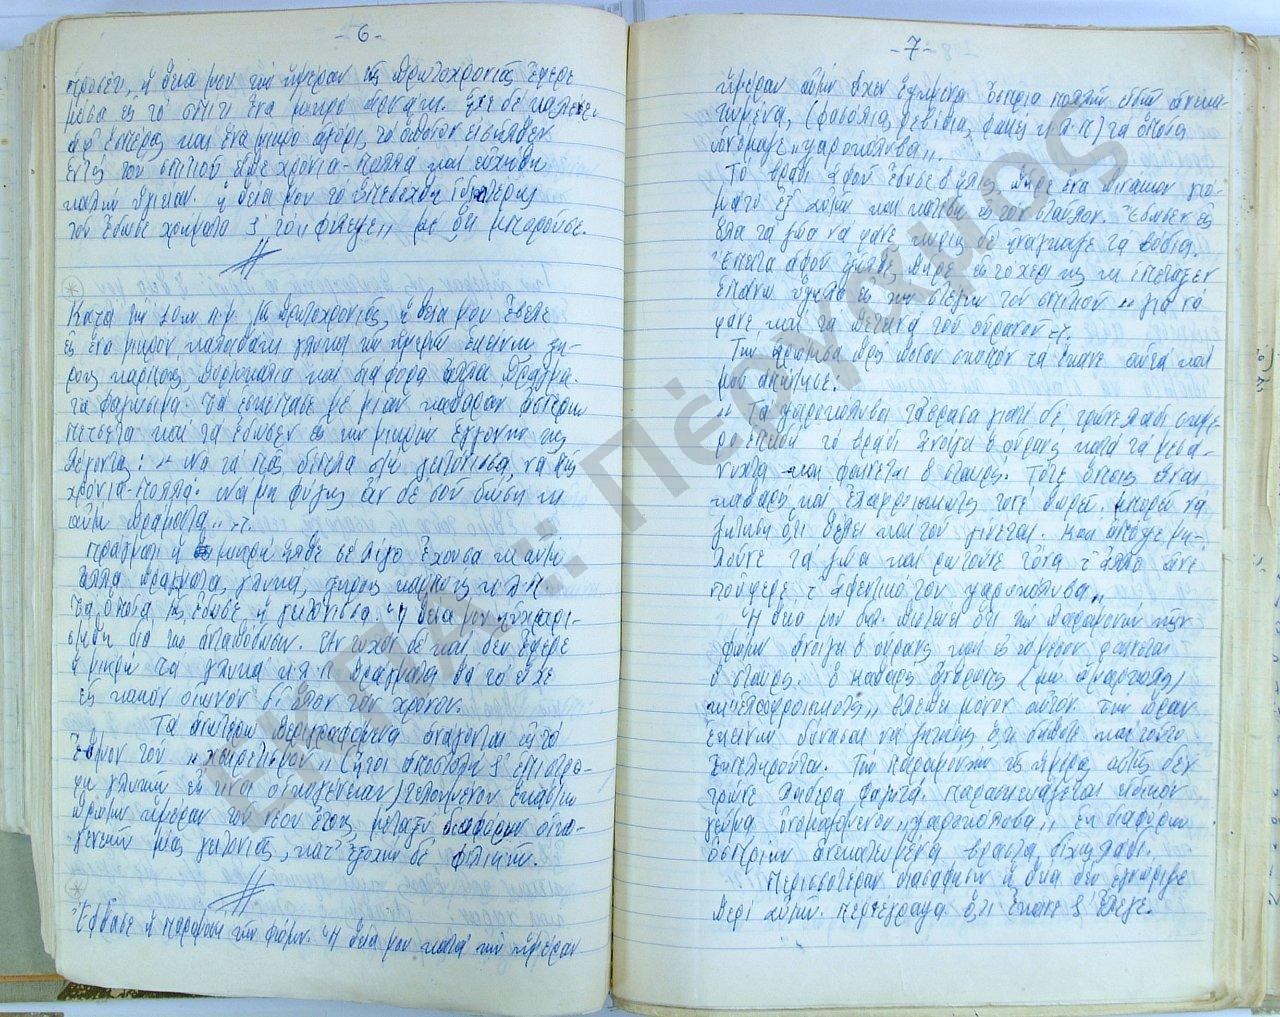 -6-
πρωΐαν, ἡ θεία μου τὴν ἡμέραν τῆς Πρωτοχρονιᾶς ἔφερε
μέσα εἰς τὸ σπίτι ἕνα μικρὸ ἀρνάκι. Εἶχε δὲ καλέσει
ἀφ' ἑσπέρας καὶ ἕνα μικρὸ ἀγόρι, τὸ ὁποῖον εἰσῆλθεν
ἐντὸς τοῦ σπιτιοῦ εἶπε χρόνια-πολλὰ καὶ εὐχήθη
καλὴν ὑγείαν. Ἡ θεία μου τὸ ὑπεδέχθη
τοῦ ἔδωσε χρήματα & τὸ "φίλεψε" με ὅτι μποροῦσε.
Κατὰ τὴν 10ην π.μ. τῆς Πρωτοχρονιᾶς, ἡ θεία μου ἔβαλε
εἰς ἕνα μικρὸν καλαθάκι γλυκὰ τῆς ἡμέρας ἐκείνης ξη-
ροὺς καρπούς, πορτοκάλια καὶ διάφορα ἄλλα πράγμα-
τα φαγώσιμα. Τὰ ἐσκέπασε μὲ μίαν καθαρὰν ἀσπρην
πετσέτα καὶ τὰ ἔδωσεν εἰς τὴν μικρὴν ἐγγονήν της
λέγοντας: "Νὰ τὰ πᾶς δίπλα στὴ γειτόνισσα, νὰ πῇς
χρόνια-πολλά. Νὰ μὴ φύγῃς ἂν δὲ σοῦ δώσῃ κι
αὐτὴ πράματα".
Πράγματι ἡ μικρὴ ἦλθε σὲ λίγο ἔχουσα κι αὐτὴ
ἄλλα πράγματα, γλυκά, ξηροὺς καρποὺς κ.λ.π.
τὰ ὁποῖα τῆς ἔδωσε ἡ γειτόνισσα. Ἡ θεία μου ηὐχαρι-
στήθη διὰ τὴν ἀνταπόδοσιν. Ἂν τυχὸν δὲ καὶ δὲν ἔφερε
ἡ μικρὴ τὰ γλυκὰ κ.λ.π. πράγματα θὰ τὸ εἶχε
εἰς κακὸν οἰωνὸν δι' ὅλον τὸν χρόνον.
Τὰ ἀνωτέρω περιγραφόμενα ἀνάγονται εἰς τὸ
ἔθιμον τοῦ "χαιρετισμοῦ" (ἤτοι ἀποστολὴ & ἐπιστρο-
φὴ γλυκῶν εἰς τινα οἰκογένειαν) τελούμενον ἑκάστην
πρώτην ἡμέραν τοῦ νέου ἔτους, μεταξὺ διαφόρων οἰκο-
γενειῶν μιᾶς γειτονιᾶς, κατ' ἐξοχὴν δὲ φιλικῶν.
Ἔφθασε ἡ παραμονὴ τῶν φώτων. Ἡ θεία μου κατὰ τὴν ἡμέραν
-7-
ἡμέραν αὐτὴν εἶχεν ἑψημένα ὄσπρια πολλῶν εἰδῶν ἀνακα-
τωμένα, (φασόλια, ρεβίθια, φακὲς κ.λ.π.) τὰ ὁποῖα
ὠνόμαζε "φαροπόλυβα".
Τὸ βράδυ ἀφοῦ ἔδυσε ὁ ἥλιος πῆρε ἕνα πιάτον γιο-
μᾶτο ἐξ αὐτῶν καὶ κατέβη εἰς τὸν σταῦλον. Ἔδωσεν εἰς
ὅλα τὰ ζῶα νὰ φᾶνε κυρίως δὲ ἠνάγκαζε τὰ βόδια.
Ἔπειτα ἀφοῦ ἦλθε, πῆρε εἰς τὸ χέρι της κι ἐπέταξεν
ἐπάνω ὑψηλὰ εἰς τὴν στέγην τοῦ σπιτιοῦ "γιὰ νὰ
φᾶνε καὶ τὰ πετεινὰ τοῦ οὐρανοῦ".
Τὴν ἠρώτησα πρὸς ποῖον σκοπὸν τὰ ἔκανε αὐτὰ καὶ
μοῦ ἀπήντησε:
"Τὰ φαροπόλυβα τἄβρασα γιατὶ δὲ τρῶνε λάδι σήμε
ρα ἐπειδὴ τὸ βράδυ ἀνοίγει ὁ οὐρανὸς κατὰ τὰ μεσά-
νυχτα καὶ φαίνεται ὁ σταυρός. Τότε ὅποιος εἶναι
καθαρὸς καὶ ἐλαφροΐσκιωτος τότε θωρεῖ. Μπορεῖ νὰ
ζητήσῃ ὅ,τι θέλει καὶ τοῦ γίνεται. Καὶ ἀπόψε μι-
λοῦνε τὰ ζῶα καὶ ρωτοῦνε τὅνα τ' ἄλλο ἂνε
τοὔφερε τ' ἀφεντικό του φαροπόλυβα".
Ἡ θεία μου πιστεύει ὅτι τὴν παραμονὴν τῶν
φώτων ἀνοίγει ὁ οὐρανὸς καὶ εἰς τὸ μέσον φαίνεται
ὁ σταυρός. Ὁ καθαρὸς ἄνθρωπος (μὴ ἁμαρτωλός)
κι "ἐλαφροΐσκιωτος" βλέπει μόνον αὐτόν. Τὴν ὥραν
ἐκείνην δύναται νὰ ζητήσῃ ὅ,τι δήποτε καὶ τοῦτο
ἐκπληροῦται. Τὴν παραμονὴν τῆς ἡμέρας αὐτῆς δὲν
τρῶνε λαδερὰ φαγητά. Παρασκευάζεται εἰδικὸν
γεῦμα ὀνομαζόμενον "φαροπόλυβα" ἐκ διαφόρων
ὀσπρίων ἀνακατωμένα βραστὰ δίχως λάδι.
Περισσοτέραν διασάφησιν ἡ θεία δὲν ἐγνώριζε
περὶ αὐτῶν. Περιέγραψα ὅ,τι ἔκανε & ἔλεγε.
ΕΚΠΑ :: Πέργαμος